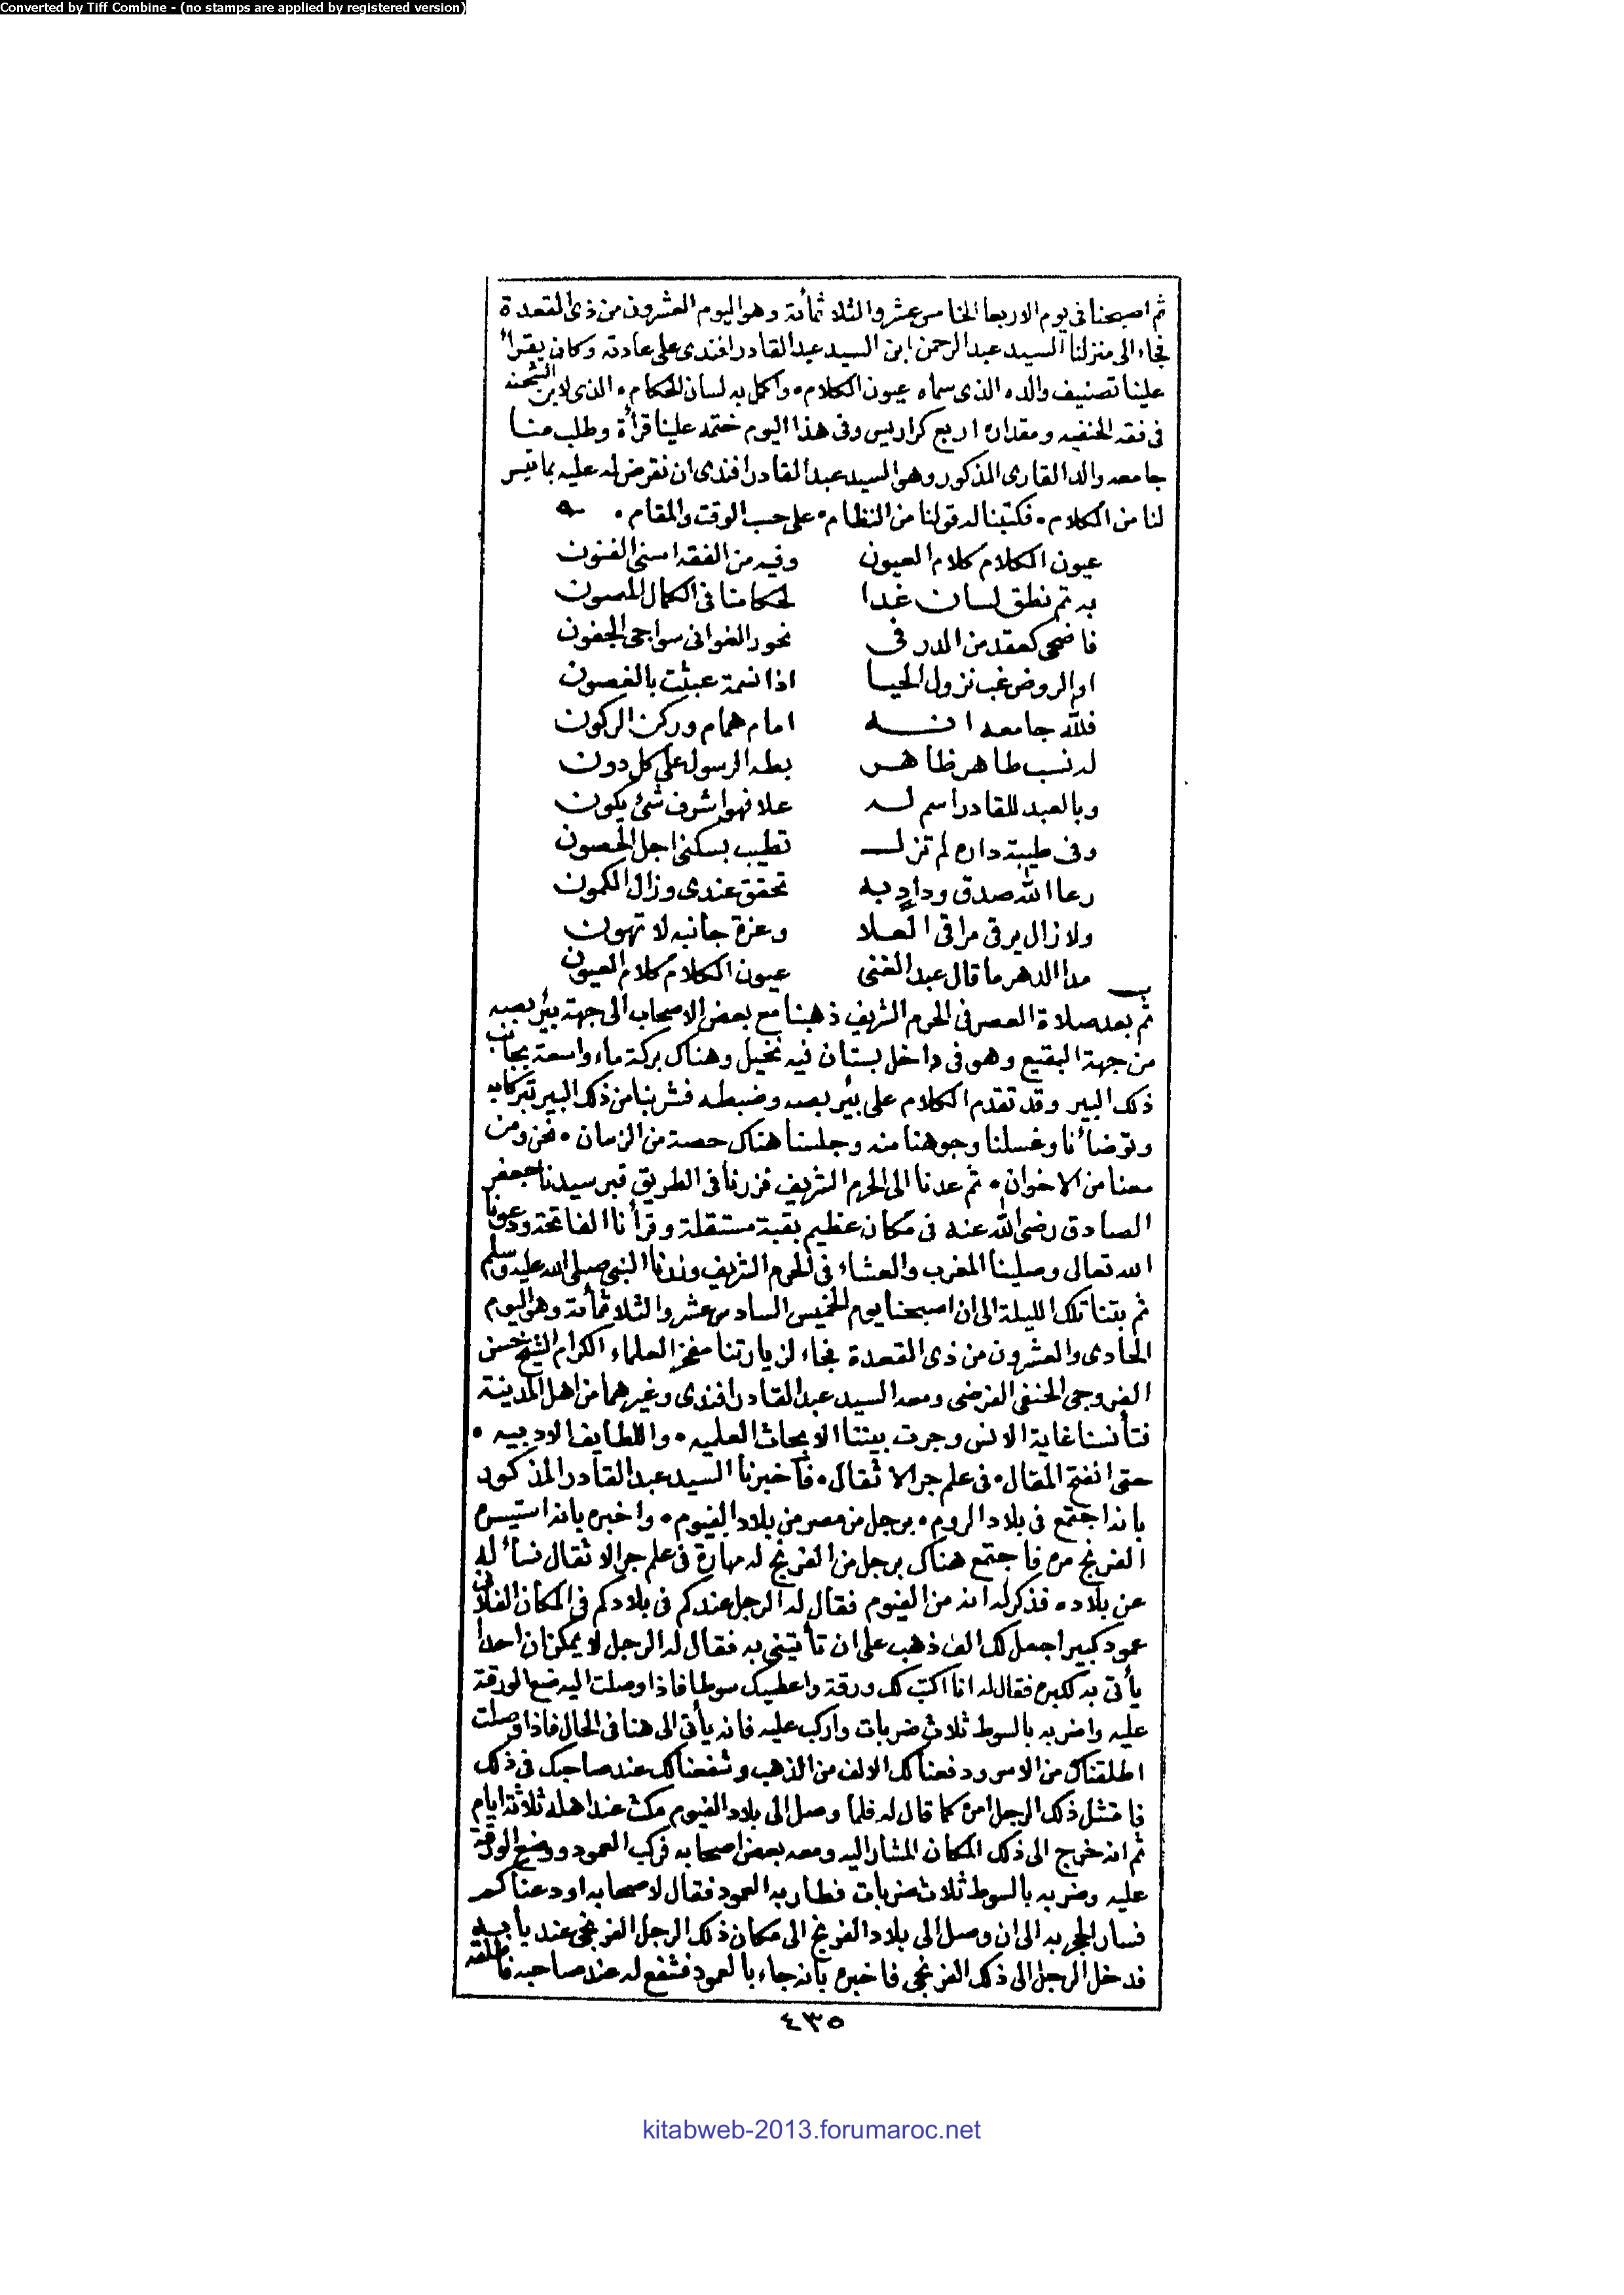 Converted by Tiff Combine - (no stamps are applied by registered version)
ثم اصبحنا فى يوم الاربعا الخامس عشر والثلاثمأئة وهو اليوم العشرون من ذى القعدة
فجاء الى منزلنا السيد عبد الرحمن ابن السيد عبد القادر افندى على عادته وكان يقرأ
علينا تصنيف والده الذى سماه عيون الكلام، واكمل به لسان الحكام، الذى لابن الشحنه
فى فقه الحنفيه ومقداره اربع كراريس وفى هذا اليوم ختمه علينا قرأة وطلب منا
جامعه والد القارى المذكور وهو السيد عبد القادر افندى ان نقرض له عليه بما تيسر
لنا من الكلام، فكتبنا له قولنا من النظام، على حسب الوقت والمقام،
عيون الكلام كلام العيون وفيه من الفقه اسنى الفنون
به تم نطق لسان غدا لحكامنا فى الكمال المصون
فاضحى كعقد من الدر فى نحور الغوانى سواجى الجفون
او الروض غب نزول الحيا اذا نسمة عبثت بالغصون
فلله جامعه انه امام همام وركن الركون
له نسب طاهر ظاهر بطه الرسول على كل دون
وبالعبد للقادر اسم له علا فهو اشرف شئ يكون
وفى طيبة داره لم تزل تطيب بسكنى اجل الحصون
رعا الله صدق وداد به تحقق عندى وزال الكمون
ولا زال يرقى مراقى العلا وعزة جانبه لا تهون
مدا الدهر ما قال عبد الغنى عيون الكلام كلام العيون
ثم بعد صلاة العصر فى الحرم الشريف ذهبنا مع بعض الاصحاب الى جهة بئر بصه
من جهة البقيع وهو فى داخل بستان فيه نخيل وهناك بركة ماء واسعة بجانب
ذلك البير وقد تقدم الكلام على بئر بصه وضبطه فشربنا من ذلك البير تبركا به
وتوضأنا وغسلنا وجوهنا منه وجلسنا هناك حصة من الزمان، نحن ومن
معنا من الاخوان، ثم عدنا الى الحرم الشريف فزرنا فى الطريق قبر سيدنا جعفر
الصادق رضى الله عنه فى مكان عظيم بقبة مستقلة وقرأنا الفاتحة ودعونا
الله تعالى وصلينا المغرب والعشاء فى الحرم الشريف وزرنا النبى صلى الله عليه وسلم
ثم بتنا تلك الليلة الى ان اصبحنا يوم الخميس السادس عشر والثلاثمأئة وهو اليوم
الحادى والعشرون من ذى القعدة فجاء لزيارتنا مفخر العلماء الكرام الشيخ حسن
الفروجى الحنفى الفرضى ومعه السيد عبد القادر افندى وغيرهما من اهل المدينة
فتأنسنا غاية الانس وجرت بيننا الابحاث العلميه، واللطايف الادبيه،
حتى انفتح المقال، فى علم جر الاثقال، فأخبرنا السيد عبد القادر المذكور
بانه اجتمع فى بلاد الروم، برجل من مصر من بلاد الفيوم، واخبره بانه استيسره
الفرنج مره فاجتمع هناك برجل من الفرنج له مهارة فى علم جر الاثقال فسأله
عن بلاده فذكر له انه من الفيوم فقال له الرجل عندكم فى بلادكم فى المكان الفلانى
عمود كبير اجعل لك الف ذهب على ان تأتينى به فقال له الرجل لا يمكن ان احدا
يأتى به لكبره فقال له انا اكتب لك ورقة واعطيك سوطا فاذا وصلت اليه ضع الورقة
عليه واضربه بالسوط ثلاث ضربات واركب عليه فانه يأتى الى هنا فى الحال فاذا وصلت
اطلقناك من الاسر ودفعنا لك الالف من الذهب وشفعنا لك عند صاحبك فى ذلك
فامتثل ذلك الرجل امره كما قال له فلما وصل الى بلاد الفيوم مكث عند اهله ثلاثة ايام
ثم انه خرج الى ذلك المكان المشار اليه ومعه بعض اصحابه فركب العمود ووضع الورقة
عليه وضربه بالسوط ثلاث ضربات فطار به العمود فقال لاصحابه اودعناكم
فسار الحجر به الى ان وصل الى بلاد الفرنج الى مكان ذلك الرجل الفرنجى عند بابه
فدخل الرجل الى ذلك الفرنجى فاخبره بانه جاء بالعمود فشفع له عند صاحبه فاطلقه
٤٣٥
kitabweb-2013.forumaroc.net